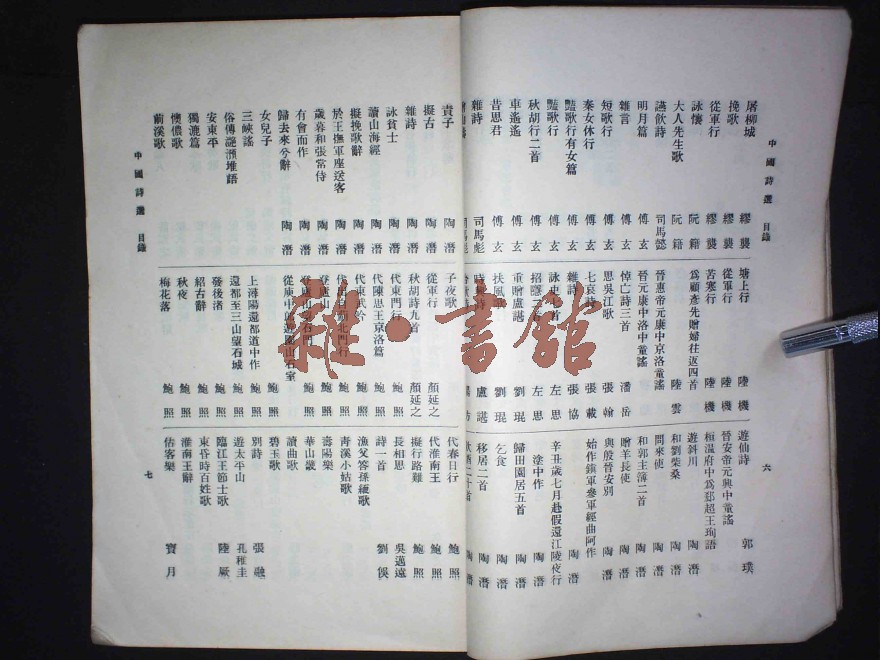 中國詩選 目錄
六
屠柳城 繆襲
挽歌 繆襲
從軍行 繆襲
詠懷 阮籍
大人先生歌 阮籍
讌飲詩 司馬懿
明月篇 傅玄
雜言 傅玄
短歌行 傅玄
秦女休行 傅玄
豔歌行有女篇 傅玄
豔歌行 傅玄
秋胡行二首 傅玄
車遙遙 傅玄
昔思君 傅玄
雜詩 司馬彪
塘上行 陸機
從軍行 陸機
苦寒行 陸機
為顧彥先贈婦往返四首 陸雲
晉惠帝元康中京洛童謠
晉元康中洛中童謠
悼亡詩三首 潘岳
思吳江歌 張翰
七哀詩 張載
雜詩 張協
詠史 首 左思
招隱 左思
重贈盧諶 劉琨
扶風 劉琨
時 詩 盧諶
遊仙詩 郭璞
晉安帝元興中童謠
桓溫府中為郄超王珣語
遊斜川 陶潛
和劉柴桑 陶潛
問來使 陶潛
和郭主簿二首 陶潛
贈羊長使 陶潛
與殷晉安別 陶潛
始作鎮軍參軍經曲阿作 陶潛
辛丑歲七月赴假還江陵夜行塗中作 陶潛
歸田園居五首 陶潛
乞食 陶潛
移居二首 陶潛
飲酒二十首
中國詩選 目錄
七
責子 陶潛
擬古 陶潛
雜詩 陶潛
詠貧士 陶潛
讀山海經 陶潛
擬挽歌辭 陶潛
於王撫軍座送客 陶潛
歲暮和張常侍 陶潛
有會而作 陶潛
歸去來兮辭 陶潛
女兒子
三峽謠
俗傳灩澦堆語
安東平
獨漉篇
懊儂歌
前溪歌
子夜歌
從軍行 顏延之
秋胡詩九首 顏延之
代東門行 鮑照
代陳思王京洛篇 鮑照
代東武吟 鮑照
代出自薊北門行 鮑照
登廬山 鮑照
登廬山 石門 鮑照
從庾中 園山石室 鮑照
上潯陽還都道中作 鮑照
還都至三山望石城 鮑照
發後渚 鮑照
紹古辭 鮑照
秋夜 鮑照
梅花落 鮑照
代春日行 鮑照
代淮南王 鮑照
擬行路難 鮑照
長相思 吳邁遠
詩一首 劉俁
漁父答孫緬歌
青溪小姑歌
壽陽樂
華山畿
讀曲歌
碧玉歌
別詩 張融
遊太平山 孔稚圭
臨江王節士歌 陸厥
東昏時百姓歌
淮南王辭
估客樂 寶月
雜·書館